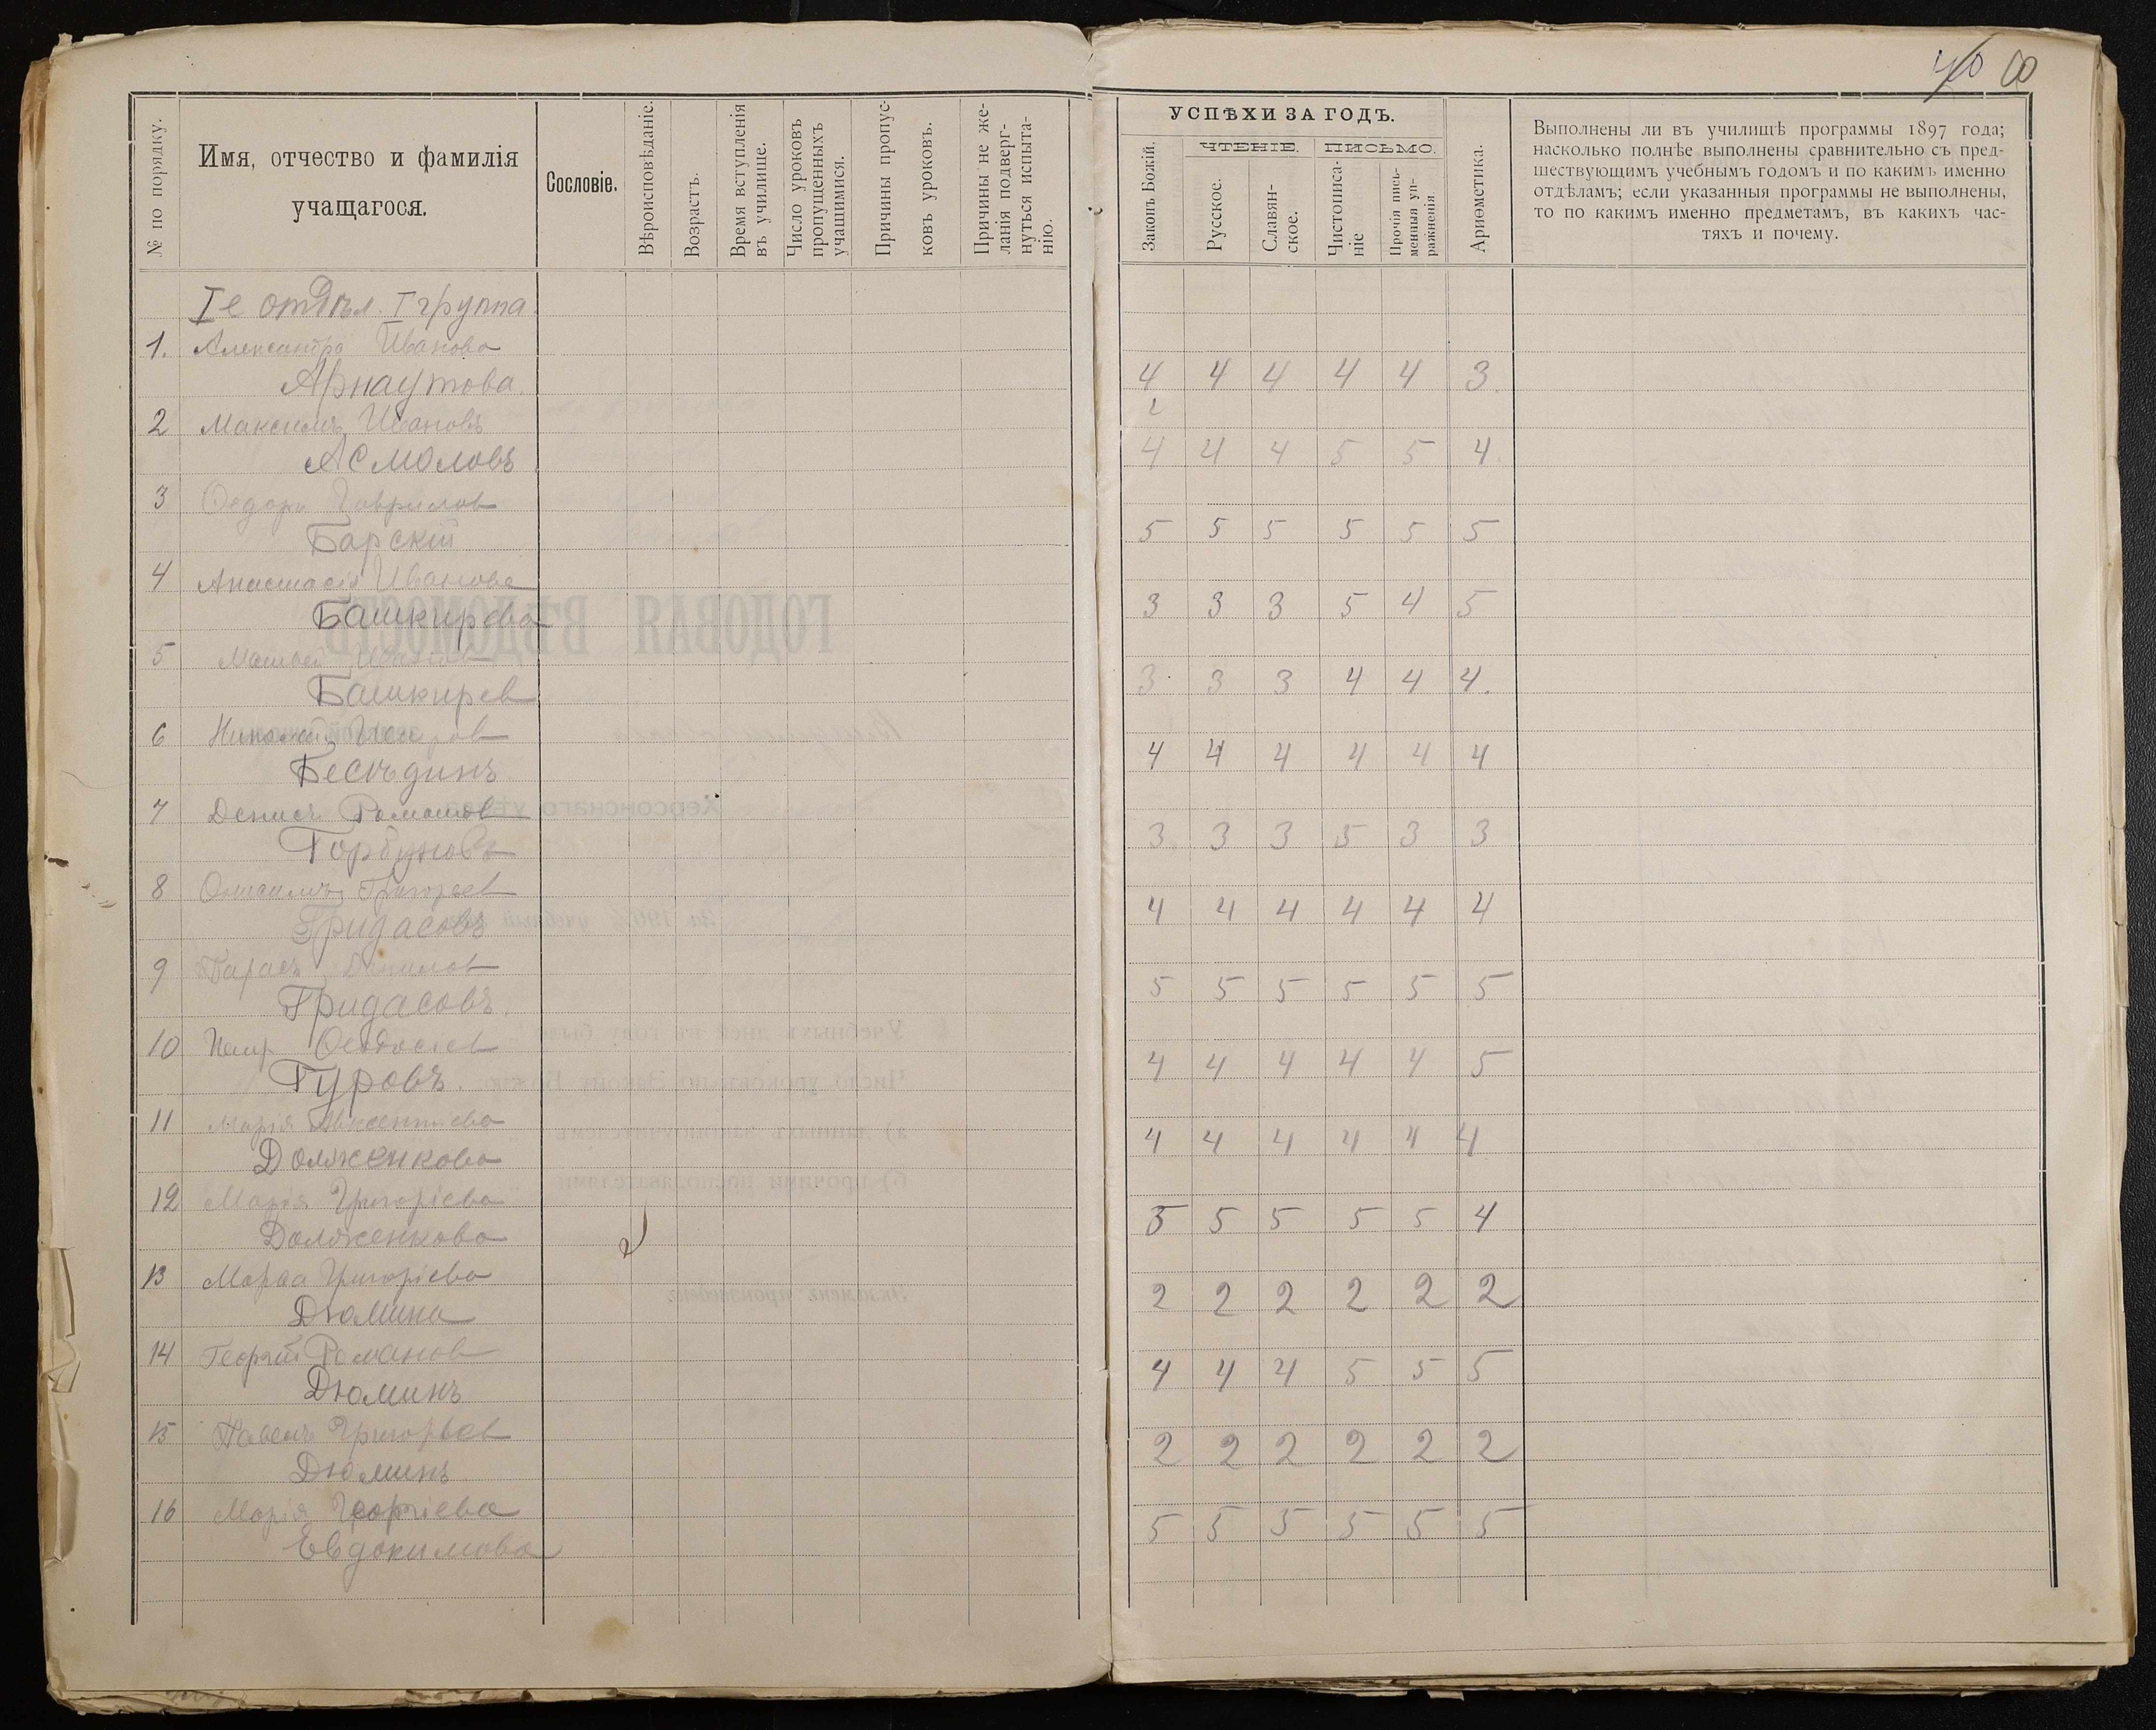 40 60
№ по порядку.
Имя, отчество и фамилія
учащагося.
Сословіе.
Вѣроисповѣданіе.
Возрастъ.
Время вступленія
въ училище.
Число уроковъ
пропущенныхъ
учащимися.
Причины пропус-
ковъ уроковъ.
Причины не же-
ланія подверг-
нуться испыта-
нію.
УСПѢХИ ЗА ГОДЪ.
Законъ Божій.
ЧТЕНІЕ.
Русское.
Славян-
ское.
ПИСЬМО.
Чистописа-
ніе
Прочія пись-
менныя уп-
ражненія.
Ариѳметика.
Выполнены ли въ училищѣ программы 1897 года;
насколько полнѣе выполнены сравнительно съ пред-
шествующимъ учебнымъ годомъ и по какимъ именно
отдѣламъ; если указанныя программы не выполнены,
то по какимъ именно предметамъ, въ какихъ час-
тяхъ и почему.
Iе отдѣл. I группа.
1. Александра Иванова
Арнаутова. 4 4 4 4 4 3.
2 Максимъ Ивановъ
Асмоловъ. 4 4 4 5 5 4.
3 Ѳедоръ Гаврилов
Барскій 5 5 5 5 5 5
4 Анастасія Иванова
Башкирева 3 3 3 5 4 5
5 Матвей Иванов
Башкирев 3. 3 3 4 4 4.
6 Николай
Бесѣдинъ 4 4 4 4 4 4
7 Денисъ Романов
Горбуновъ 3 3 3 5 3 3
8 Онисимъ Григорьев
Гридасовъ 4 4 4 4 4 4
9 Тарасъ Данилов
Гридасовъ. 5 5 5 5 5 5
10 Петр Ѳеодосіев
Гуровъ. 4 4 4 4 4 5
11 Марія Авксентіева
Долженкова 4 4 4 4 4 4
12 Марія Григоріева
Долженкова 5 5 5 5 5 4
13 Марѳа Григоріева
Дюмина 2 2 2 2 2 2
14 Георгій Романов
Дюминъ 4 4 4 5 5 5
15 Павелъ Григорьев
Дюминъ 2 2 2 2 2 2
16 Марія Георгіева
Евдокимова 5 5 5 5 5 5